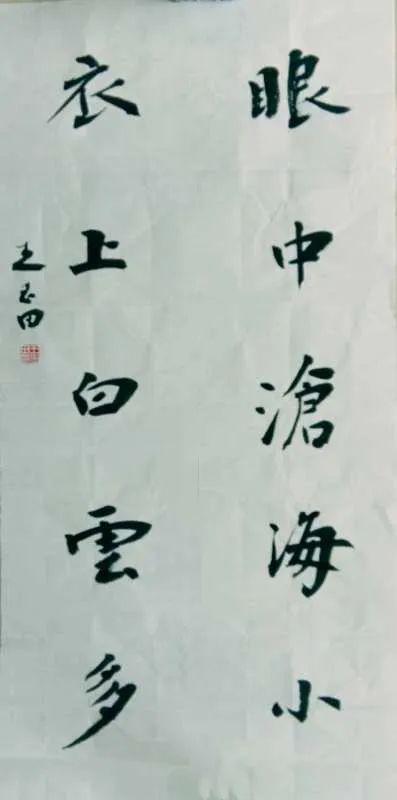 眼中滄海小
衣上白雲多
王玉田